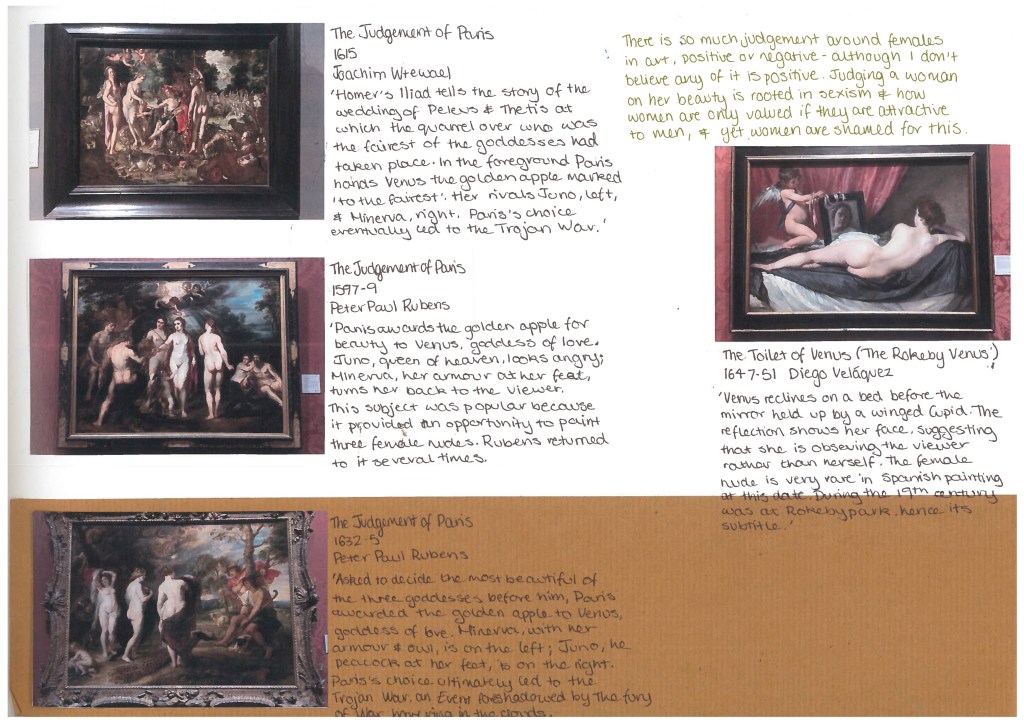 The Judgement of Paris
1615
Joachim Wtewael
'Homer's Iliad tells the story of the
wedding of Peleus & Thetis at
which the quarrel over who was
the fairest of the goddesses had
taken place. In the foreground Paris
hands Venus the golden apple marked
'to the fairest'. Her rivals Juno, left,
& Minerva, right. Paris's choice
eventually led to the Trojan War.'
The Judgement of Paris
1597-9
Peter Paul Rubens
'Paris awards the golden apple for
beauty to Venus, goddess of love.
Juno, queen of heaven, looks angry;
Minerva, her armour at her feet,
turns her back to the viewer.
This subject was popular because
it provided an opportunity to paint
three female nudes. Rubens returned
to it several times.
The Judgement of Paris
1632-5
Peter Paul Rubens
'Asked to decide the most beautiful of
the three goddesses before him, Paris
awarded the golden apple to Venus,
goddess of love. Minerva, with her
armour & owl, is on the left; Juno, he
peacock at her feet, is on the right.
Paris's choice ultimately led to the
Trojan War, an Event foreshadowed by the fury
of War hovering in the clouds.
There is so much judgement around females
in art, positive or negative - although I don't
believe any of it is positive. Judging a woman
on her beauty is rooted in sexism & how
women are only valued if they are attractive
to men, & yet women are shamed for this.
The Toilet of Venus ('The Rokeby Venus')
1647-51 Diego Velázquez
'Venus reclines on a bed before the
mirror held up by a winged Cupid. The
reflection shows her face, suggesting
that she is obseving the viewer
rather than herself. The female
nude is very rare in Spanish painting
at this date. During the 19th century
was at Rokeby park, hence its
subtitle.'